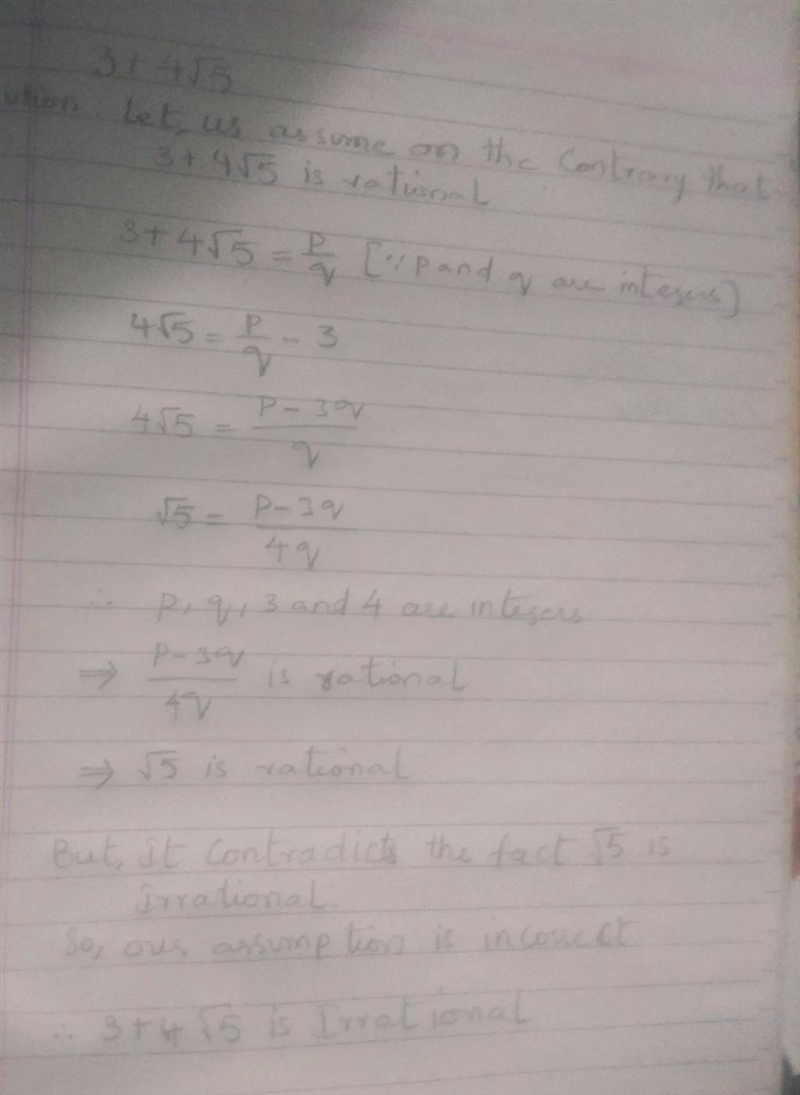 3+4√5
ution: Let, us assume on the Contrary that
3+4√5 is rational
3+4√5 = p/q [∵ p and q are integers]
4√5 = p/q - 3
4√5 = p-3q/q
√5 = p-3q/4q
∴ p, q, 3 and 4 are integers
⇒ p-3q/4q is rational
⇒ √5 is rational
But, It Contradicts the fact √5 is
Irrational.
So, our assumption is incorrect
∴ 3+4√5 is Irrational